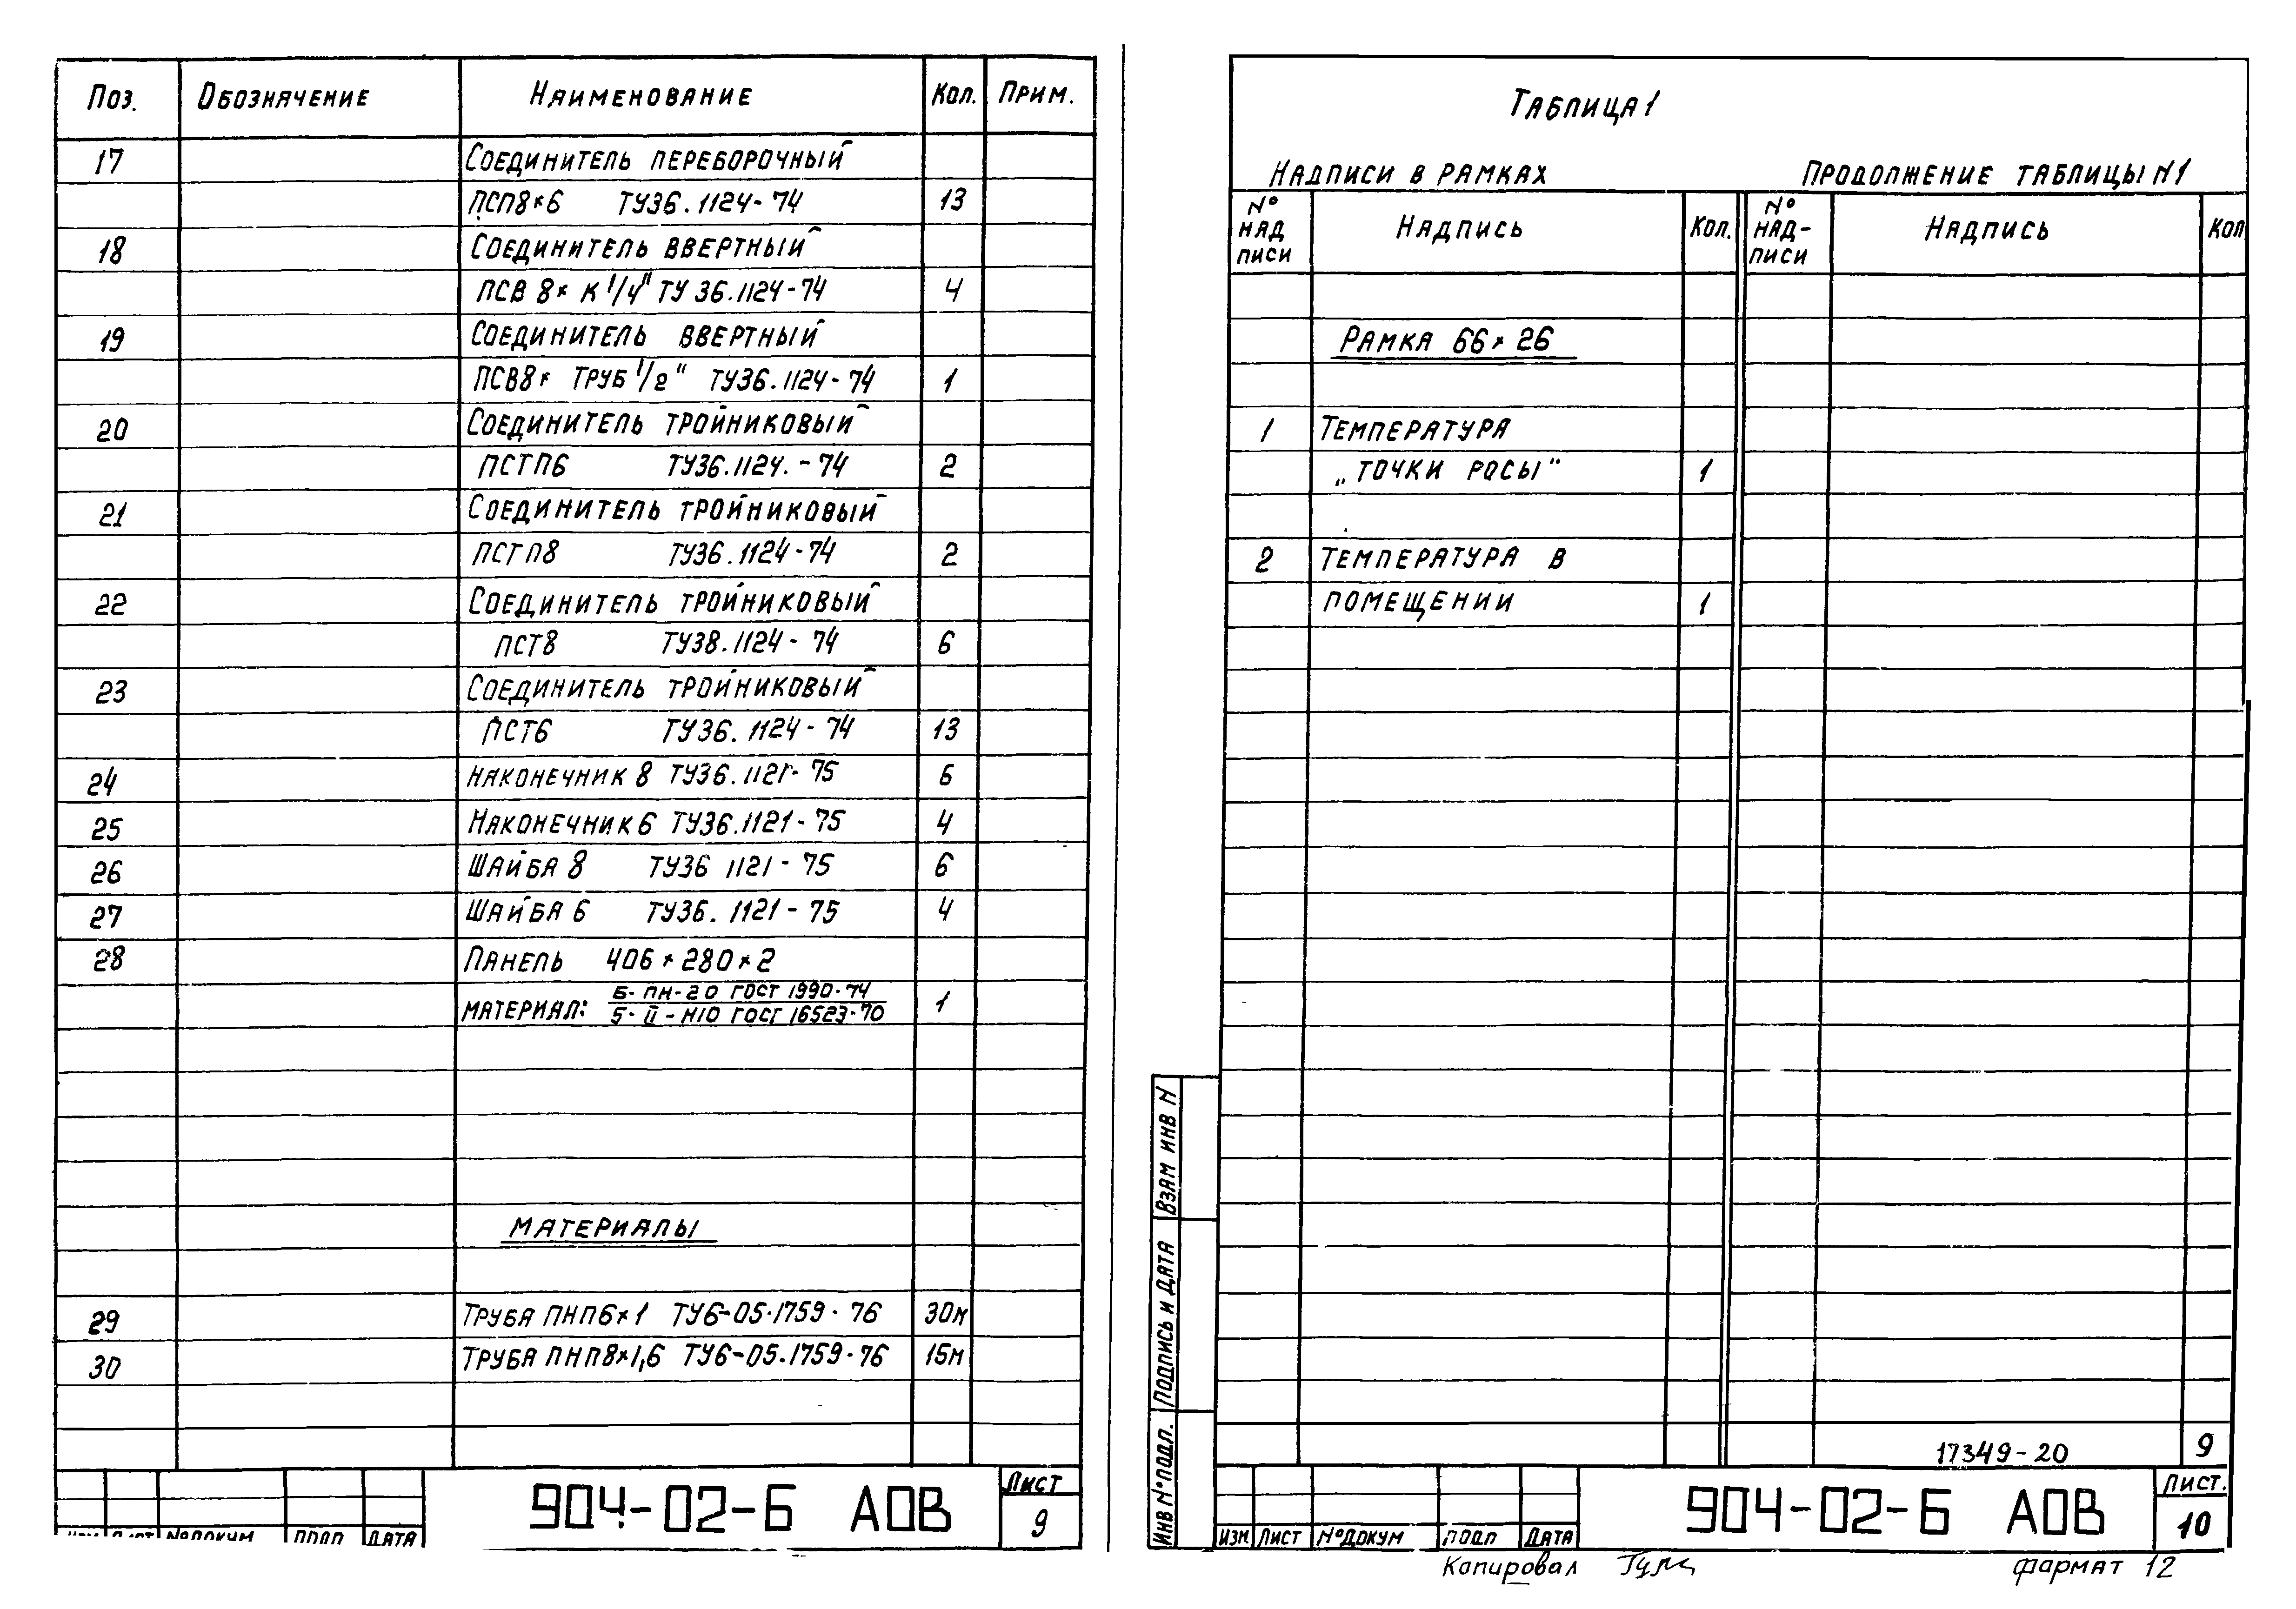 Поз. Обозначение Наименование Кол. Прим.
17 Соединитель переборочный
ПСП8×6 ТУ36.1124-74 13
18 Соединитель ввертный
ПСВ 8× К 1/4" ТУ 36.1124-74 4
19 Соединитель ввертный
ПСВ8× ТРУБ 1/2" ТУ36.1124-74 1
20 Соединитель тройниковый
ПСТП6 ТУ36.1124.-74 2
21 Соединитель тройниковый
ПСТП8 ТУ36.1124-74 2
22 Соединитель тройниковый
ПСТ8 ТУ38.1124-74 6
23 Соединитель тройниковый
ПСТ6 ТУ36.1124-74 13
24 Наконечник 8 ТУ36.1121-75 6
25 Наконечник 6 ТУ36.1121-75 4
26 Шайба 8 ТУ36 1121-75 6
27 Шайба 6 ТУ36.1121-75 4
28 Панель 406×280×2
материал: Б-ПН-20 ГОСТ 1990-74 1
5-II-Н10 ГОСТ 16523-70
Материалы
29 Труба ПНП6×1 ТУ6-05.1759-76 30м
30 Труба ПНП8×1,6 ТУ6-05.1759-76 15м
904-02-Б АОВ
Лист
9
Изм Лист №докум Подп Дата
Таблица 1
Надписи в рамках Продолжение таблицы N1
№ надписи Надпись Кол. № над-писи Надпись Кол
Рамка 66×26
1 Температура
„точки росы" 1
2 Температура в
помещении 1
Взам инв N
Подпись и дата
Инв №подл.
17349-20 9
904-02-Б АОВ
Лист.
10
Изм Лист №докум Подп Дата
Копировал
формат 12